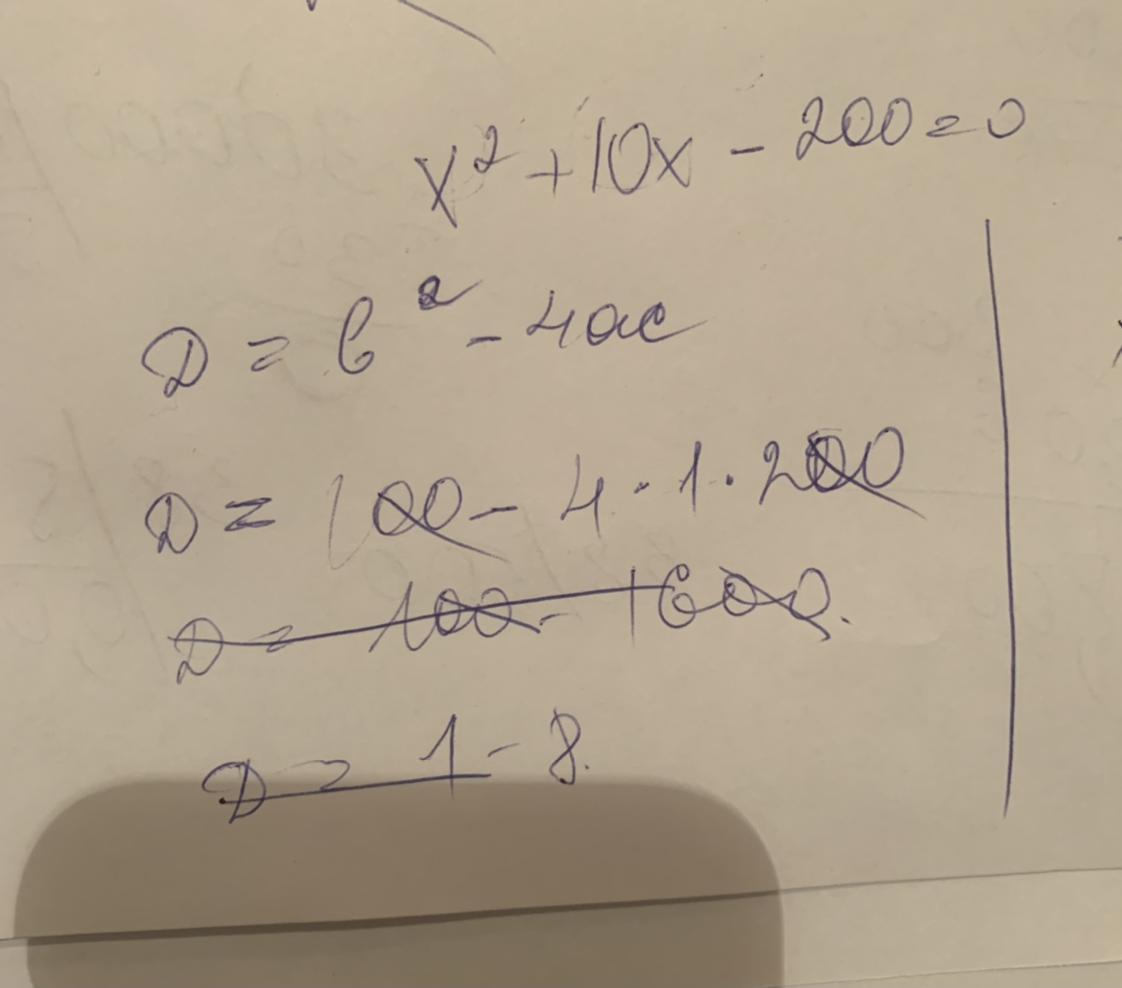 x² + 10x - 200 = 0
D = b² - 4ac
D = 100 - 4 · 1 · 200
D = 100 - 1600.
D = 1 - 8.